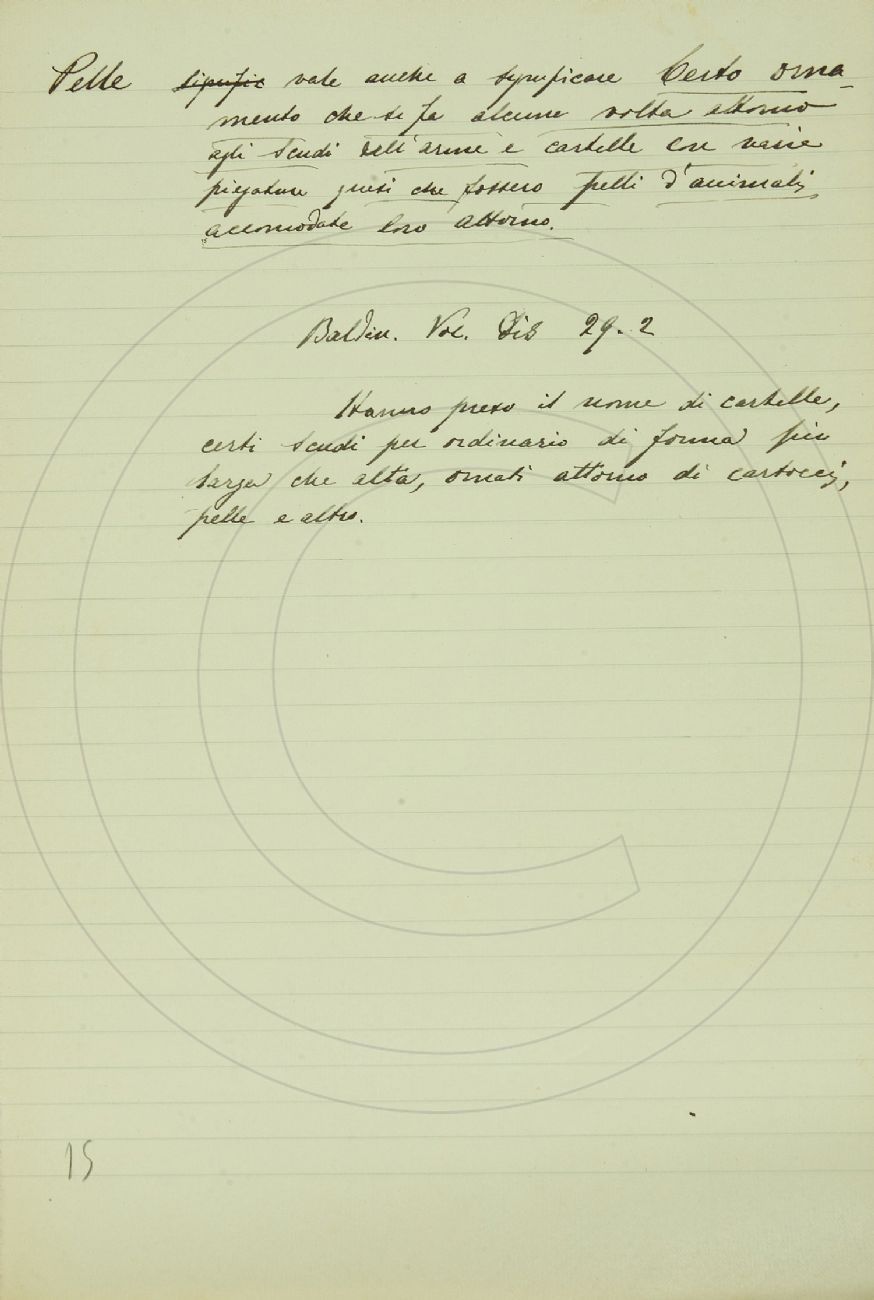 Pelle signific vale anche a significare Certo orna-
mento che si fa alcune volta attorno
agli scudi dell'arme e cartelle con varie
piegature quasi che fossero pelli d'animali,
accomodate loro attorno.
Baldin. Voc. Dis 29. 2
Hanno preso il nome di cartelle,
certi scudi per ordinario di forma più
larga che alta, ornati attorno di cartocci,
pelle e altro.
15